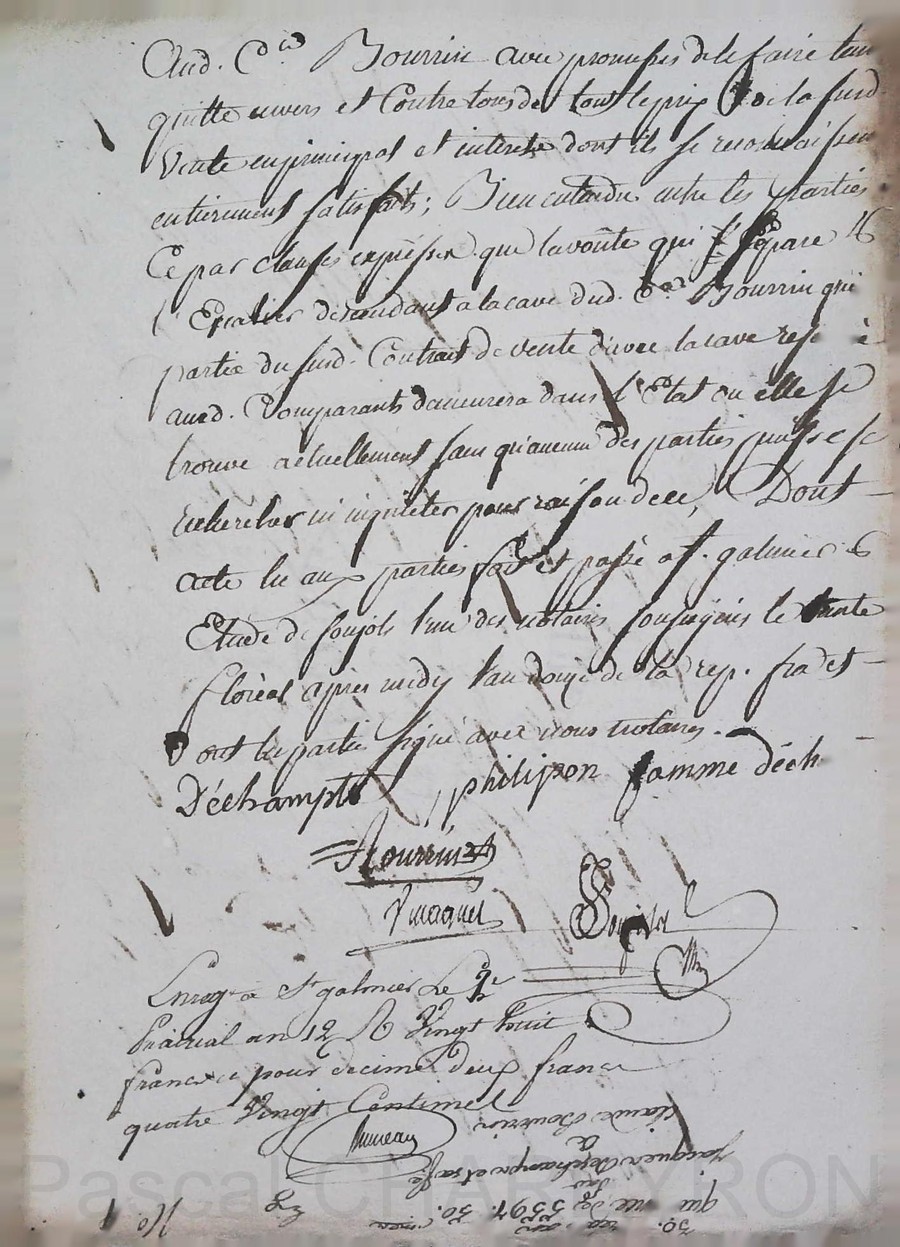 Aud. C.en Bourrin avec promesses de le faire tenir
quitte envers et Contre tous de tout le prix de la susd.
Vente en principal et interets dont ils se reconnaissent
entierement satisfaits; Bien entendu entre les parties
Ce par clause expresse que la voûte qui separe
Escalier descendant a la cave dud. C.en Bourrin qui
partie du susd. Contrat de vente d'avec la cave
auxd. Comparants demeurera dans l'Etat ou elle se
trouve actuellement sans qu'aucun des parties puisse se
rechercher ni inquieter pour raison de ce, Dont
acte lu aux parties fait et passé a St. galmier
Etude de Soujols l'un des notaires soussignés le trente
floréal apres midy l'an douze de la rep. fra et
ont les parties signé avec nous notaires.
Déchampt philipon famme déch
Bourrin
Enregt a St galmier Le
Prairial an 12 R Vingt huit
francs pour decime deux francs
quatre Vingt Centimes
Claude Bourrin
a
Jacques Deschamps et sa fe
qui
30.
No.
Pascal CHAMBEYRON